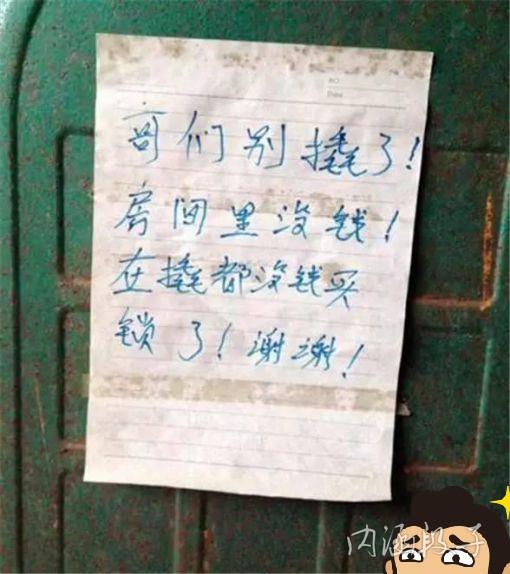 NO
Date
哥们别撬了!
房间里没钱!
在撬都没钱买
锁了!谢谢!
内涵段子